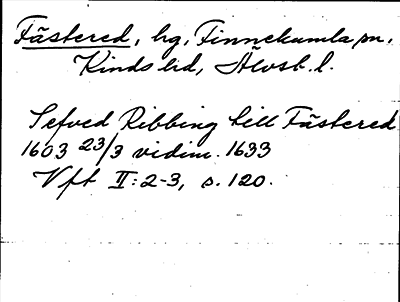 Fästered, hg, Finnekumla sn,
Kinds hd, Älvsb. l.
Sefved Ribbing till Fästered
1603 23/3 vidim. 1633
Vft II:2-3, s. 120.